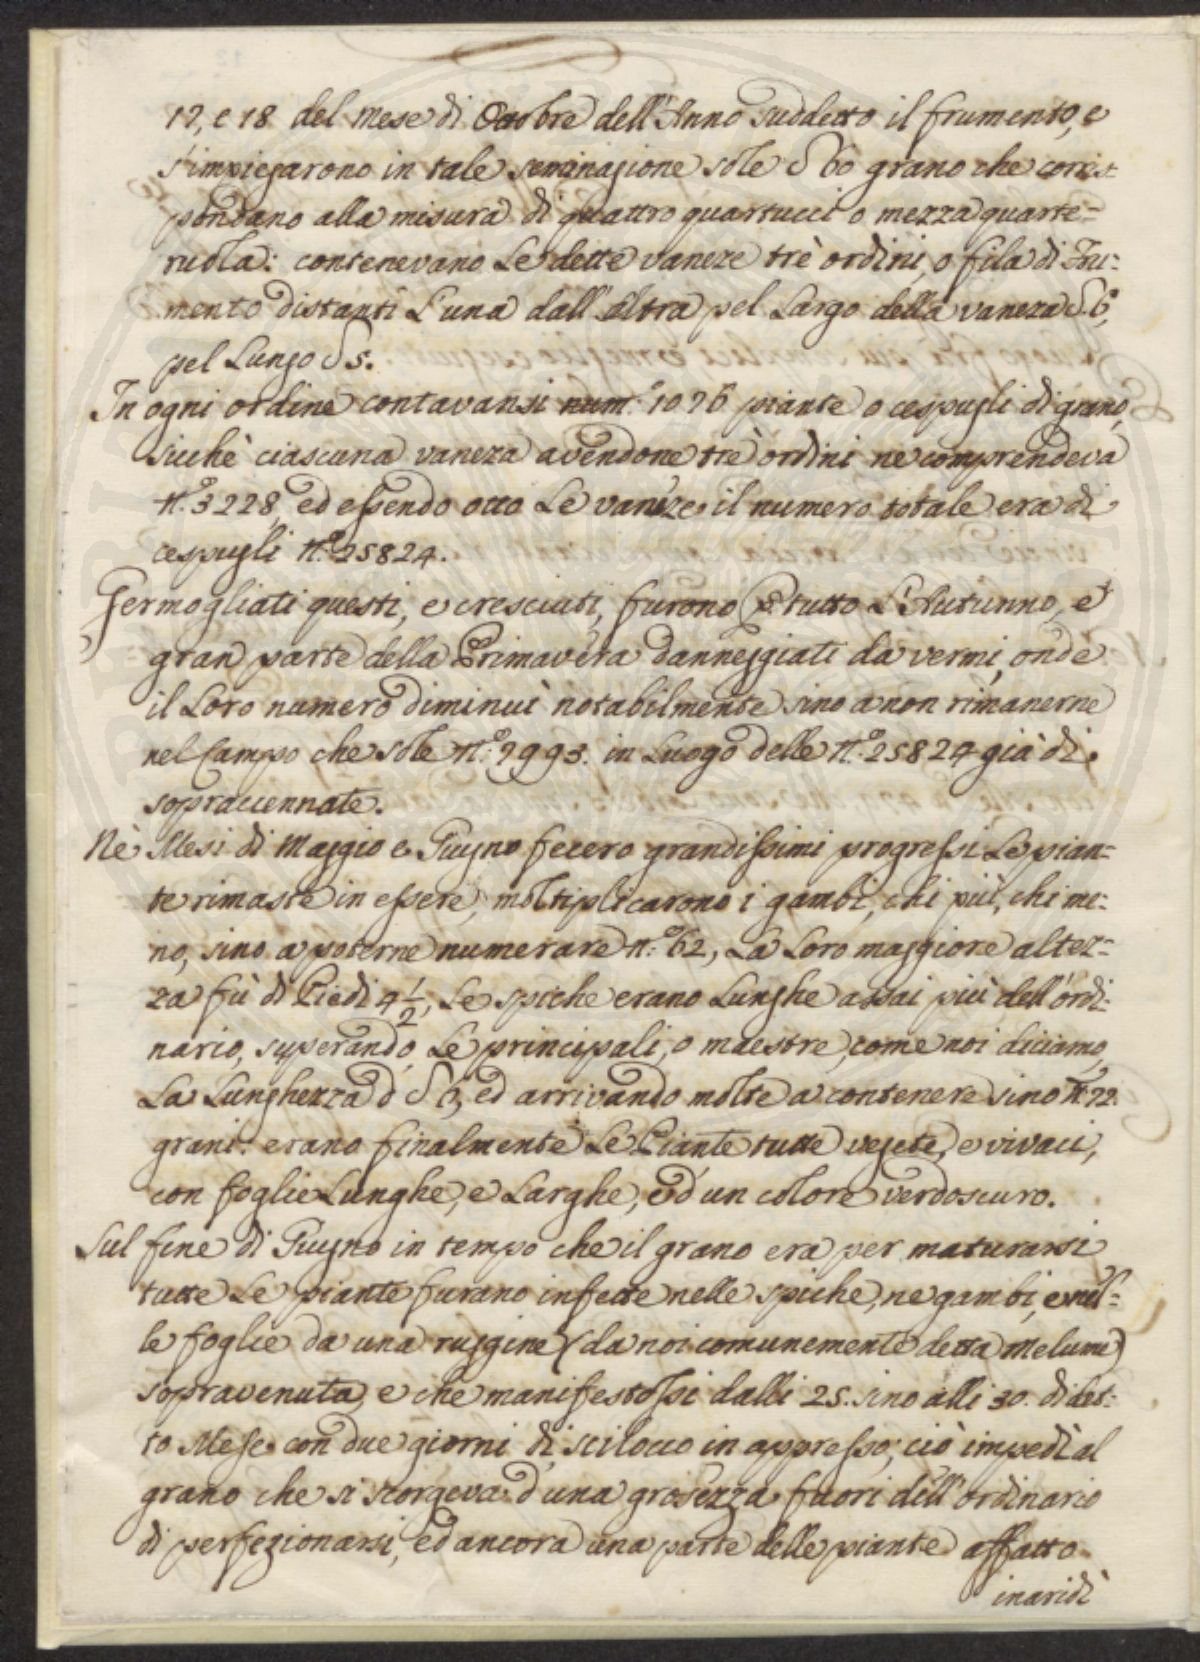 17, e 18 del mese di Ottobre dell'Anno suddetto il frumento, e
s'impiegarono in tale seminagione sole 60 grano che corris-
pondano alla misura di quattro quartucci o mezza quarte-
ruola: contenevano Le dette vaneze trè ordini, o fila di Fru-
mento distanti L'una dall'altra pel Largo della vaneza 6,
pel Lungo 5.
In ogni ordine contavansi num.o 1076 piante o cespugli di grano,
sichè ciascuna vaneza avendone trè ordini ne comprendeva
n.o 3228, ed essendo otto Le vaneze il numero totale era di
cespugli n.o 25824.
Germogliati questi, e cresciuti, furono p tutto L'Autunno, e
gran parte della Primavera danneggiati da vermi, onde
il Loro numero diminuì notabilmente sino a non rimanerne
nel Campo che sole n.o 7993. in Luogo delle n.o 25824 già di
sopraccennate.
Nè Mesi di Maggio e Giugno fecero grandissimi progressi Le pian-
te rimaste in essere, moltiplicarono i gambi, chi più, chi me-
no, sino a poterne numerare n.o 62, La Loro maggiore altez-
za fù di Piedi 4 1/2, Le spiche erano Lunghe assai più dell'ordi-
nario, superando Le principali, o maestre, come noi diciamo,
La Lunghezza d 6, ed arrivando molte a contenere sino n.o 72.
grani: erano finalmente Le Piante tutte vegete, e vivaci,
con foglie Lunghe, e Larghe, e d'un colore verdoscuro.
Sul fine di Giugno in tempo che il grano era per maturarsi
tutte Le piante furano infette nelle spiche, ne gambi, e nel-
le foglie da una ruggine (da noi comunemente detta Melume)
sopravenuta, e che manifestossi dalli 25. sino alli 30. di det-
to Mese con due giorni di scilocco in appresso; ciò impedì al
grano che si scorgeva d'una grosezza fuori dell'ordinario
di perfezionarsi, ed ancora una parte delle piante affatto
inaridì